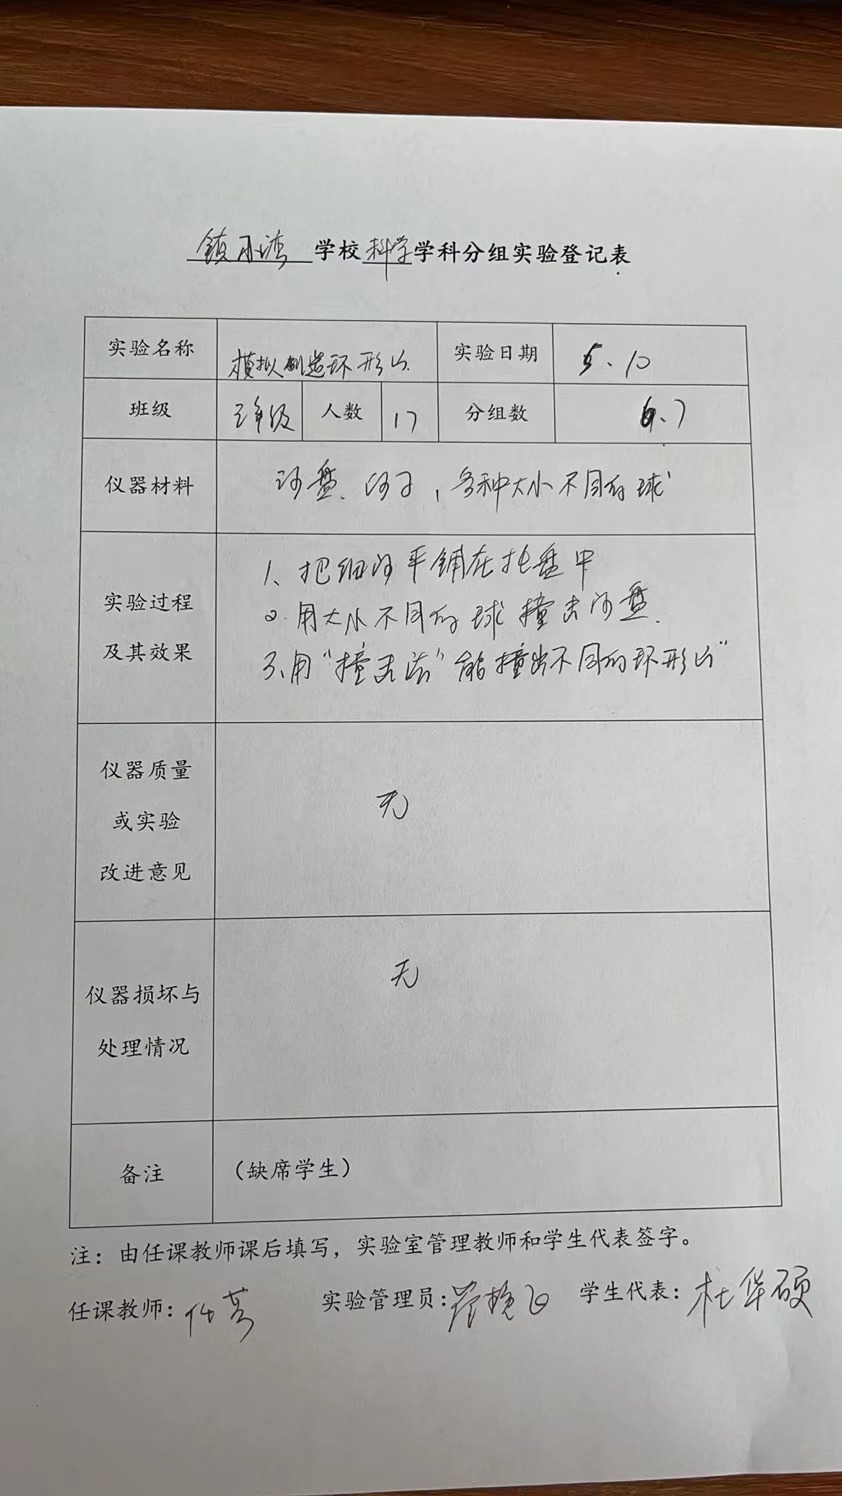 学校科学学科分组实验登记表
实验名称 模拟制造环形山 实验日期 5.10
班级 三年级 人数 17 分组数 7
仪器材料 沙盘、沙子,各种大小不同的球
实验过程及其效果
1、把细沙平铺在托盘中
2.用大小不同的球撞击沙盘.
3、用“撞击法”能撞出不同的环形山”
仪器质量
或实验
改进意见
无
仪器损坏与
处理情况
无
备注 (缺席学生)
注:由任课教师课后填写,实验室管理教师和学生代表签字。
任课教师: 实验管理员: 学生代表:杜华硕